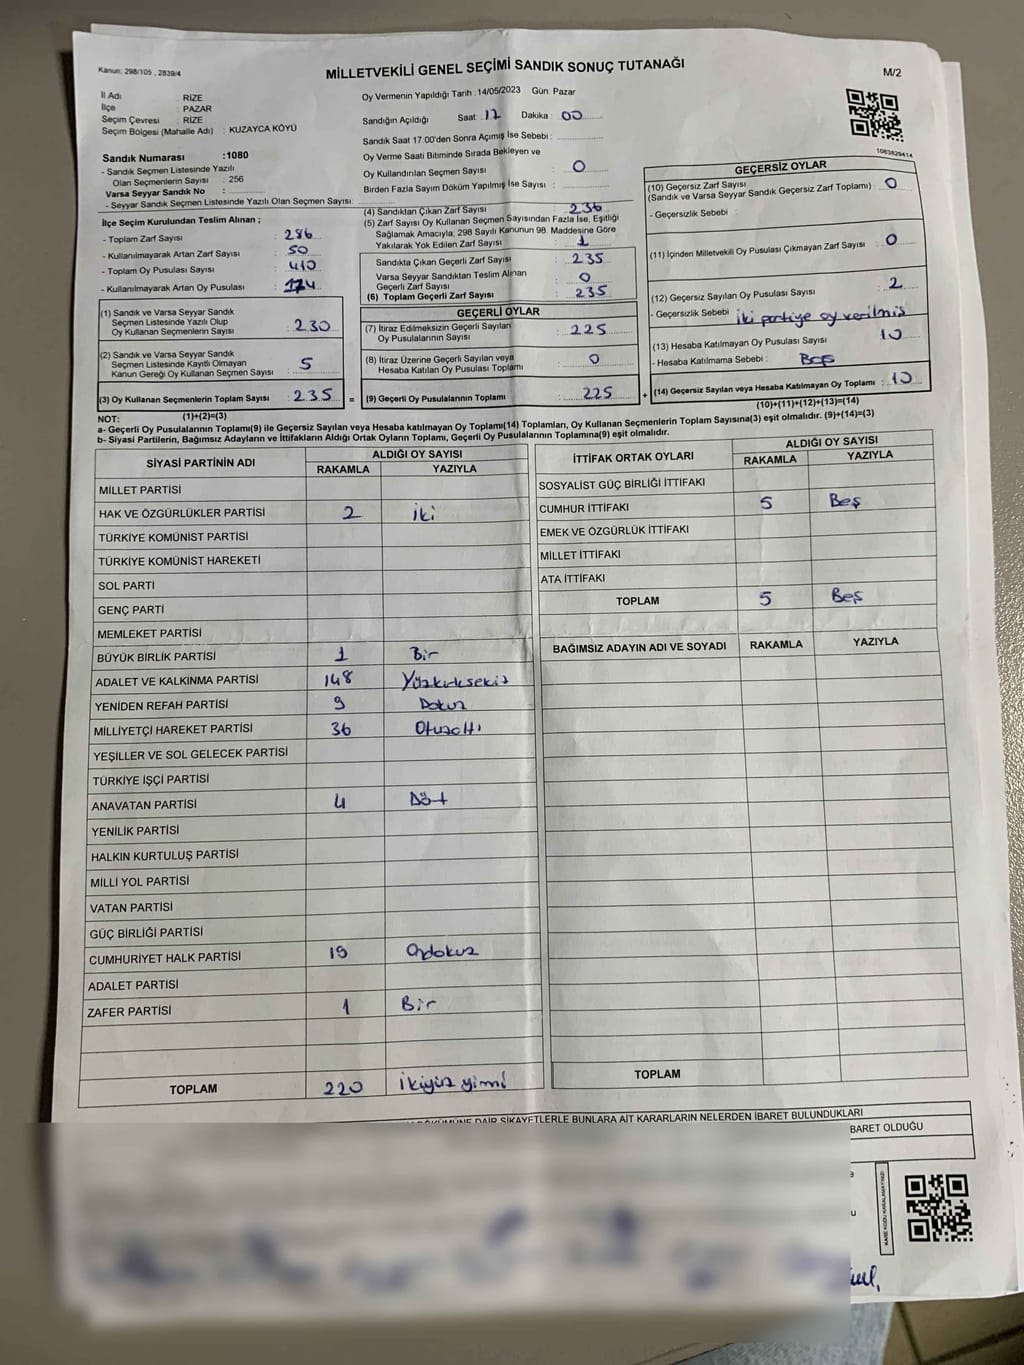 Kanun: 298/105 , 2839/4
MİLLETVEKİLİ GENEL SEÇİMİ SANDIK SONUÇ TUTANAĞI
M/2
İl Adı : RİZE
İlçe : PAZAR
Seçim Çevresi : RİZE
Seçim Bölgesi (Mahalle Adı) : KUZAYCA KÖYÜ
Sandık Numarası :1080
- Sandık Seçmen Listesinde Yazılı
Olan Seçmenlerin Sayısı : 256
Varsa Seyyar Sandık No :
- Seyyar Sandık Seçmen Listesinde Yazılı Olan Seçmen Sayısı:
Oy Vermenin Yapıldığı Tarih :14/05/2023 Gün: Pazar
Sandığın Açıldığı Saat : 17 Dakika : 00
Sandık Saat 17:00'den Sonra Açımış İse Sebebi :
Oy Verme Saati Bitiminde Sırada Bekleyen ve
Oy Kullandırılan Seçmen Sayısı : 0
Birden Fazla Sayım Döküm Yapılmış İse Sayısı :
1083829414
İlçe Seçim Kurulundan Teslim Alınan ;
- Toplam Zarf Sayısı : 286
- Kullanılmayarak Artan Zarf Sayısı : 50
- Toplam Oy Pusulası Sayısı : 410
- Kullanılmayarak Artan Oy Pusulası : 174
(1) Sandık ve Varsa Seyyar Sandık
Seçmen Listesinde Yazılı Olup
Oy Kullanan Seçmenlerin Sayısı : 230
(2) Sandık ve Varsa Seyyar Sandık
Seçmen Listesinde Kayıtlı Olmayan
Kanun Gereği Oy Kullanan Seçmen Sayısı : 5
(3) Oy Kullanan Seçmenlerin Toplam Sayısı : 235 =
(1)+(2)=(3)
(4) Sandıktan Çıkan Zarf Sayısı : 236
(5) Zarf Sayısı Oy Kullanan Seçmen Sayısından Fazla İse, Eşitliği
Sağlamak Amacıyla; 298 Sayılı Kanunun 98. Maddesine Göre
Yakılarak Yok Edilen Zarf Sayısı : 1
Sandıkta Çıkan Geçerli Zarf Sayısı : 235
Varsa Seyyar Sandıktan Teslim Alınan
Geçerli Zarf Sayısı : 0
(6) Toplam Geçerli Zarf Sayısı : 235
GEÇERLİ OYLAR
(7) İtiraz Edilmeksizin Geçerli Sayılan
Oy Pusulalarının Sayısı : 225
(8) İtiraz Üzerine Geçerli Sayılan veya
Hesaba Katılan Oy Pusulası Toplamı : 0
(9) Geçerli Oy Pusulalarının Toplamı : 225 +
GEÇERSİZ OYLAR
(10) Geçersiz Zarf Sayısı : 0
(Sandık ve Varsa Seyyar Sandık Geçersiz Zarf Toplamı)
- Geçersizlik Sebebi :
(11) İçinden Milletvekili Oy Pusulası Çıkmayan Zarf Sayısı : 0
(12) Geçersiz Sayılan Oy Pusulası Sayısı : 2
- Geçersizlik Sebebi : iki partiye oy verilmiş
(13) Hesaba Katılmayan Oy Pusulası Sayısı : 10
- Hesaba Katılmama Sebebi : Boş
(14) Geçersiz Sayılan veya Hesaba Katılmayan Oy Toplamı : 10
(10)+(11)+(12)+(13)=(14)
NOT:
a- Geçerli Oy Pusulalarının Toplamı(9) ile Geçersiz Sayılan veya Hesaba katılmayan Oy Toplamı(14) Toplamları, Oy Kullanan Seçmenlerin Toplam Sayısına(3) eşit olmalıdır. (9)+(14)=(3)
b- Siyasi Partilerin, Bağımsız Adayların ve İttifakların Aldığı Ortak Oyların Toplamı, Geçerli Oy Pusulalarının Toplamına(9) eşit olmalıdır.
SİYASİ PARTİNİN ADI ALDIĞI OY SAYISI
RAKAMLA YAZIYLA
MİLLET PARTİSİ
HAK VE ÖZGÜRLÜKLER PARTİSİ 2 iki
TÜRKİYE KOMÜNİST PARTİSİ
TÜRKİYE KOMÜNİST HAREKETİ
SOL PARTİ
GENÇ PARTİ
MEMLEKET PARTİSİ
BÜYÜK BİRLİK PARTİSİ 1 Bir
ADALET VE KALKINMA PARTİSİ 148 Yüzkırksekiz
YENİDEN REFAH PARTİSİ 9 Dokuz
MİLLİYETÇİ HAREKET PARTİSİ 36 Otuzaltı
YEŞİLLER VE SOL GELECEK PARTİSİ
TÜRKİYE İŞÇİ PARTİSİ
ANAVATAN PARTİSİ 4 Döt
YENİLİK PARTİSİ
HALKIN KURTULUŞ PARTİSİ
MİLLİ YOL PARTİSİ
VATAN PARTİSİ
GÜÇ BİRLİĞİ PARTİSİ
CUMHURİYET HALK PARTİSİ 19 Ondokuz
ADALET PARTİSİ
ZAFER PARTİSİ 1 Bir
TOPLAM 220 ikiyüz yirmi
İTTİFAK ORTAK OYLARI ALDIĞI OY SAYISI
RAKAMLA YAZIYLA
SOSYALİST GÜÇ BİRLİĞİ İTTİFAKI
CUMHUR İTTİFAKI 5 Beş
EMEK VE ÖZGÜRLÜK İTTİFAKI
MİLLET İTTİFAKI
ATA İTTİFAKI
TOPLAM 5 Beş
BAĞIMSIZ ADAYIN ADI VE SOYADI RAKAMLA YAZIYLA
TOPLAM
DAİR ŞİKAYETLERLE BUNLARA AİT KARARLARIN NELERDEN İBARET BULUNDUKLARI
BARET OLDUĞU